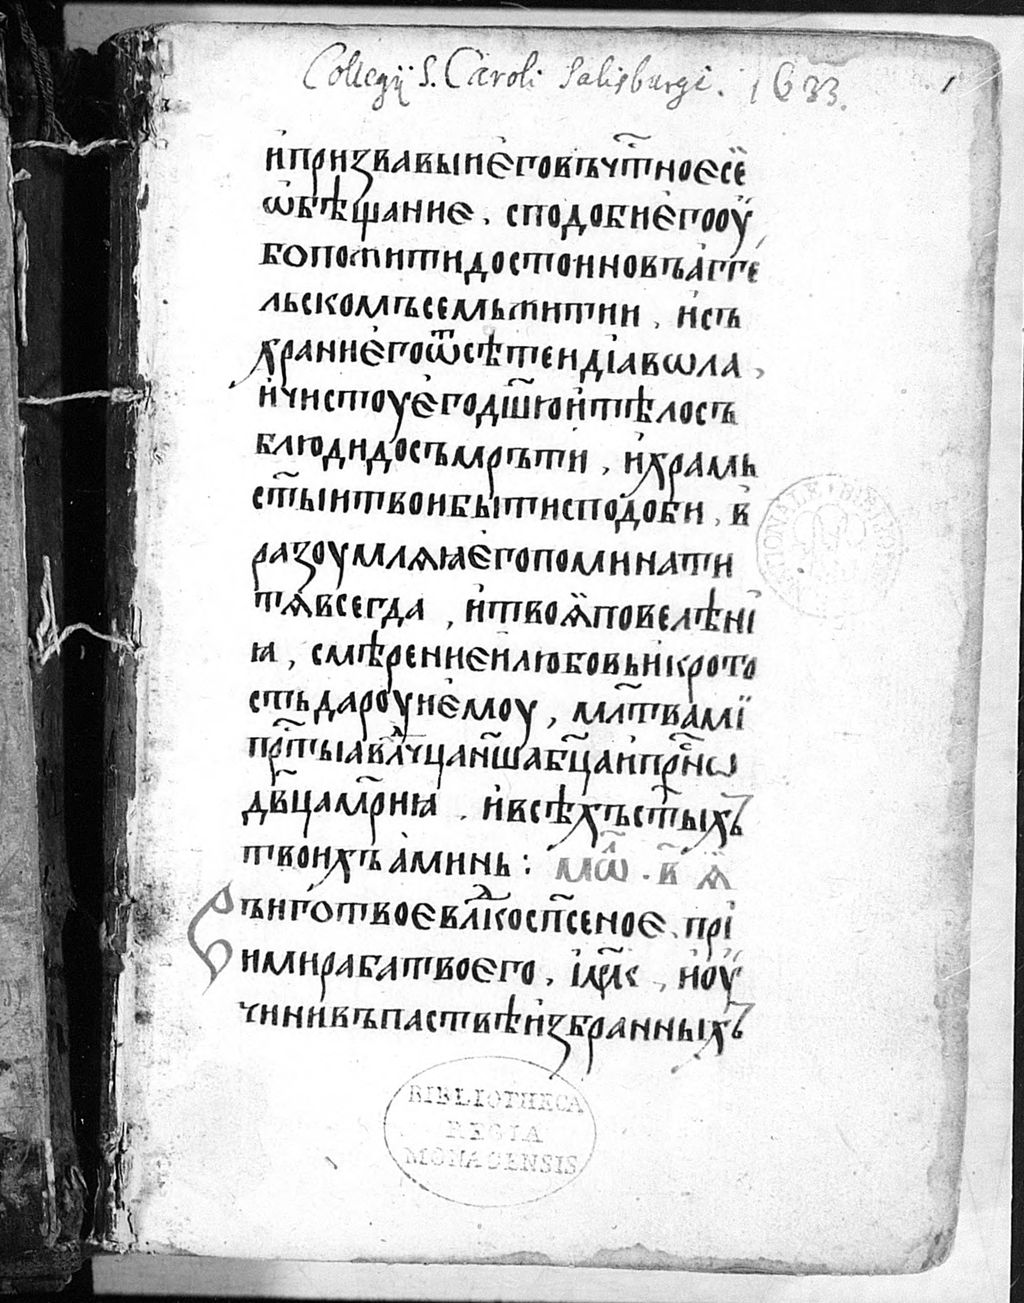 Collegij S. Caroli Salisburgi. 1633.
1
и҆призвавыиѐговъчт҃ноесѐ
ѡ҆бѣщание . сподобиѐгооу҆
бопожитидостоиновъа҆гге
льскомъсемьжитии . и҆съ
храниѐгоѿсѣтеидїавѡла ,
и҆чистоуѐгодш҃юи҆тѣлосъ
блюдидосъмръти , и҆храмь
ст҃ыитвоибытисподоби . в
разоумлѧꙗѐгопоминати
тѧвсегда , и҆твоѧ҆повелѣнї
ꙗ , смѣрениеи҆любовьи҆крото
стьдароуиѐмоу , мл҃твамї
прⷱ҇тыавлⷣчцан҃шабц҃аи҆прⷭ҇нѡ
дв҃цамр҃иꙗ . и҆всѣхъст҃ыхъ
твоихъа҆минь : мѡⷧ҇ . в҃ ꙗ҆
Бъиготвоевлⷣкосп҃сеное , прї
имирабатвоего . їмр҃к , и҆оу҆
чинивъпаствѣи҆збранныхъ
BIBLIOTHECA
REGIA
MONACENSIS